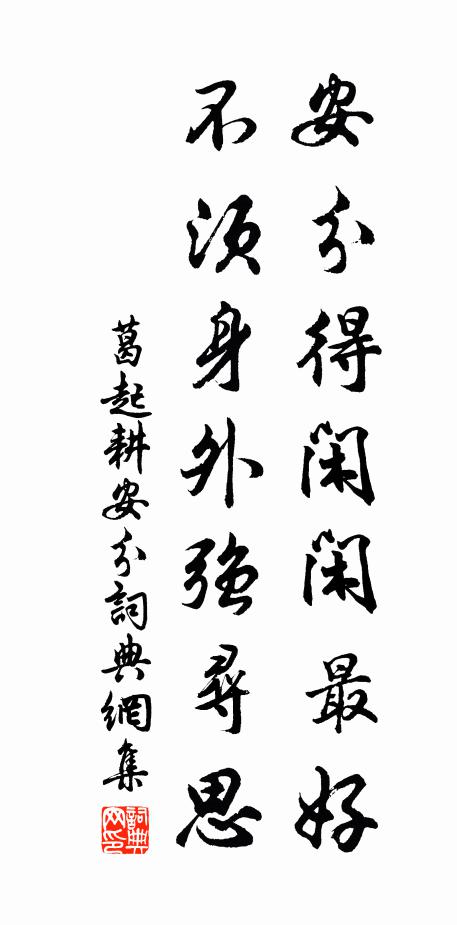 安分得閑閑最好
不須身外強尋思
葛起耕安分詞典網集
詞典網印